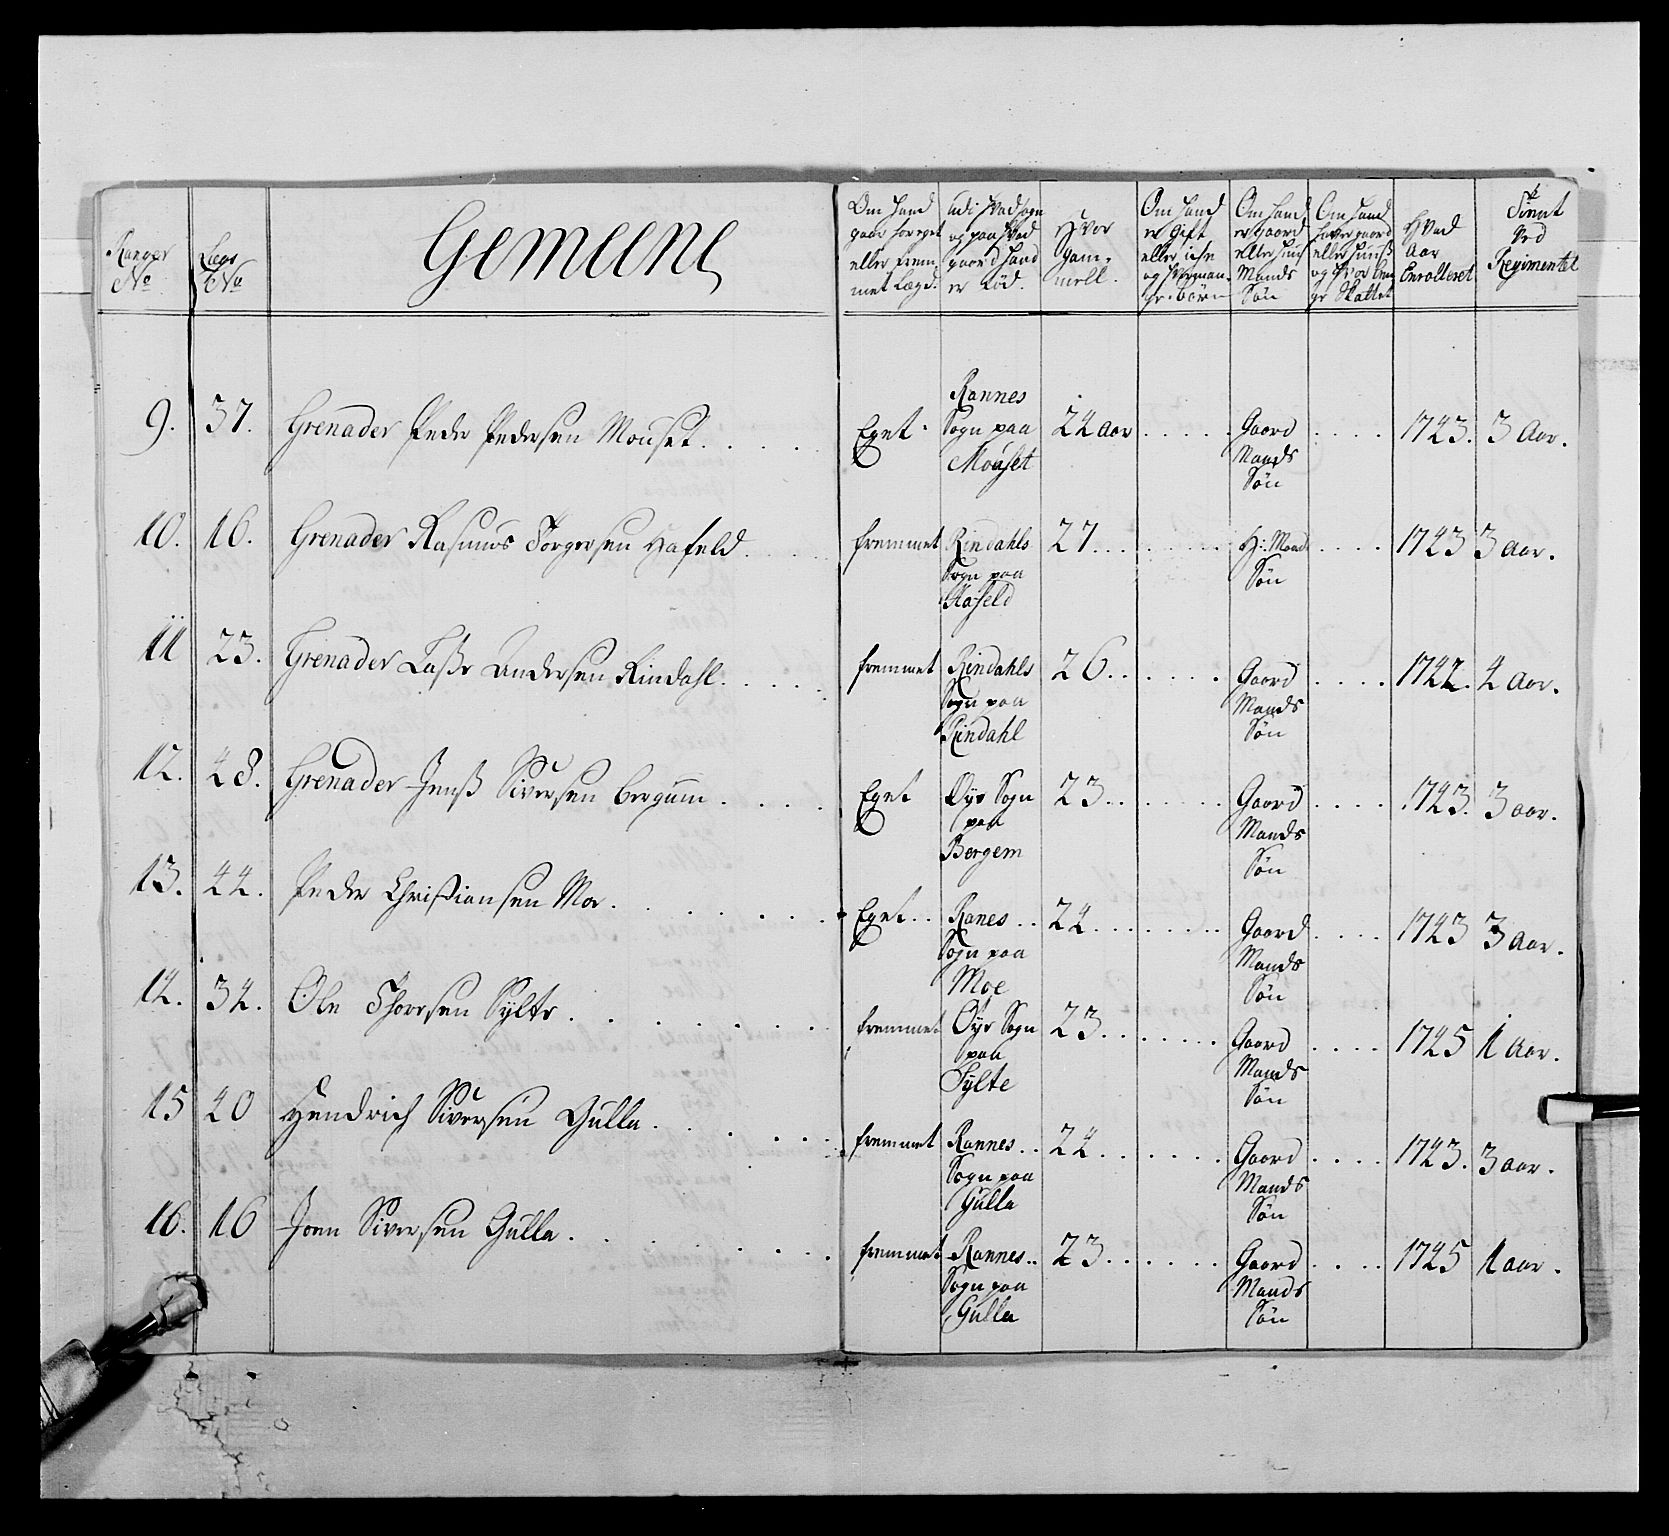 Ranger No
Lægs No
Gemeene
Om hand gaar for eget eller frem met Lægd.
udi hvad sogn og paa hvad gaard hand er Fød.
Hvor Gam mell.
Om hand er Gift eller iche og hvor man ge børn
Om hand er Gaard eller Huus Mands Søn
Om hand haver gaard eller Huuß og hvor len ge Skattet
Hvad Aar Enrolleret
Tient ved Regimentet
9. 37. Grenader Peder Pedersen Mouset. Eget Rannes Sogn paa Mouset 24 aar Gaard Mands Søn 1743. 3 Aar.
10. 16. Grenader Rasmus Torgersen Hafeld. fremmet Rindahls Sogn paa Hafeld 27. H: Mand Søn 1743 3 aar.
11 23. Grenader Laße Andersen Rindahl. fremmet Rindahls Sogn paa Rindahl 26. Gaard Mands Søn 1742. 4 Aar.
12. 48. Grenader Jenß Siversen Bergum. Eget Øye Sogn paa Bergem 23. Gaard Mands Søn 1743. 3 aar.
13. 44. Peder Christiansen Moe. Eget Ranes Sogn paa Moe 24. Gaard Mands Søn 1743 3 Aar.
14. 34. Ole Thoresen Sylte. fremmet Øye Sogn paa Sylte 23. Gaard Mands Søn 1745 1 Aar.
15 40 Hendrich Siversen Gulla. fremmet Rannes Sogn paa Gulla 24. Gaard Mands Søn 1743. 3 aar.
16. 16 Joen Siversen Gulla. fremmet Rannes Sogn paa Gulla 23. Gaard Mands Søn 1745 1 aar.